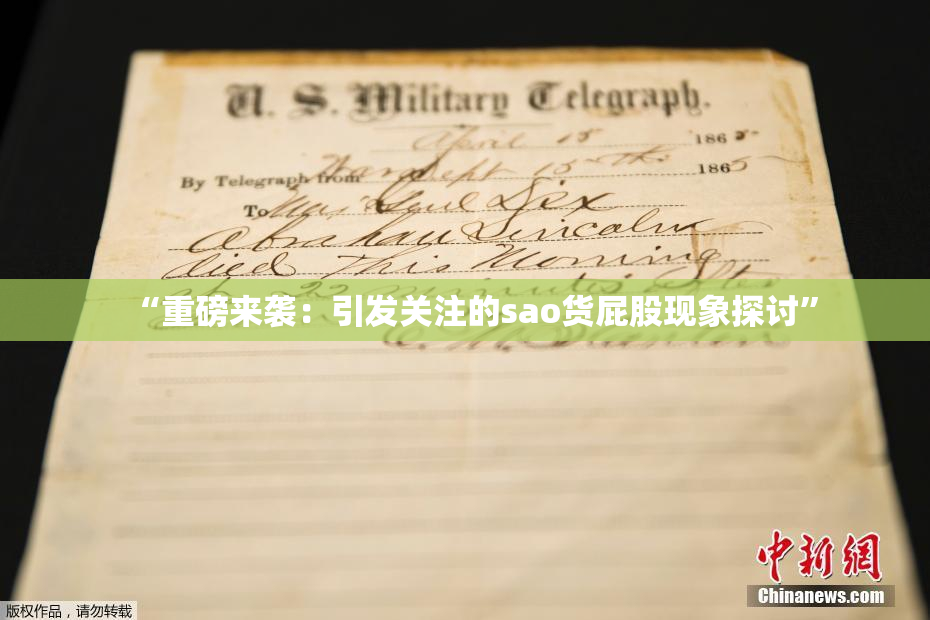 U. S. Military Telegraph.
April 15 1865
By Telegraph from War Dept 15th 1865
To Maj Genl Dix
Abraham Lincoln
died This Morning
22 minutes after
“重磅来袭：引发关注的sao货屁股现象探讨”
中新网
Chinanews.com
版权作品，请勿转载